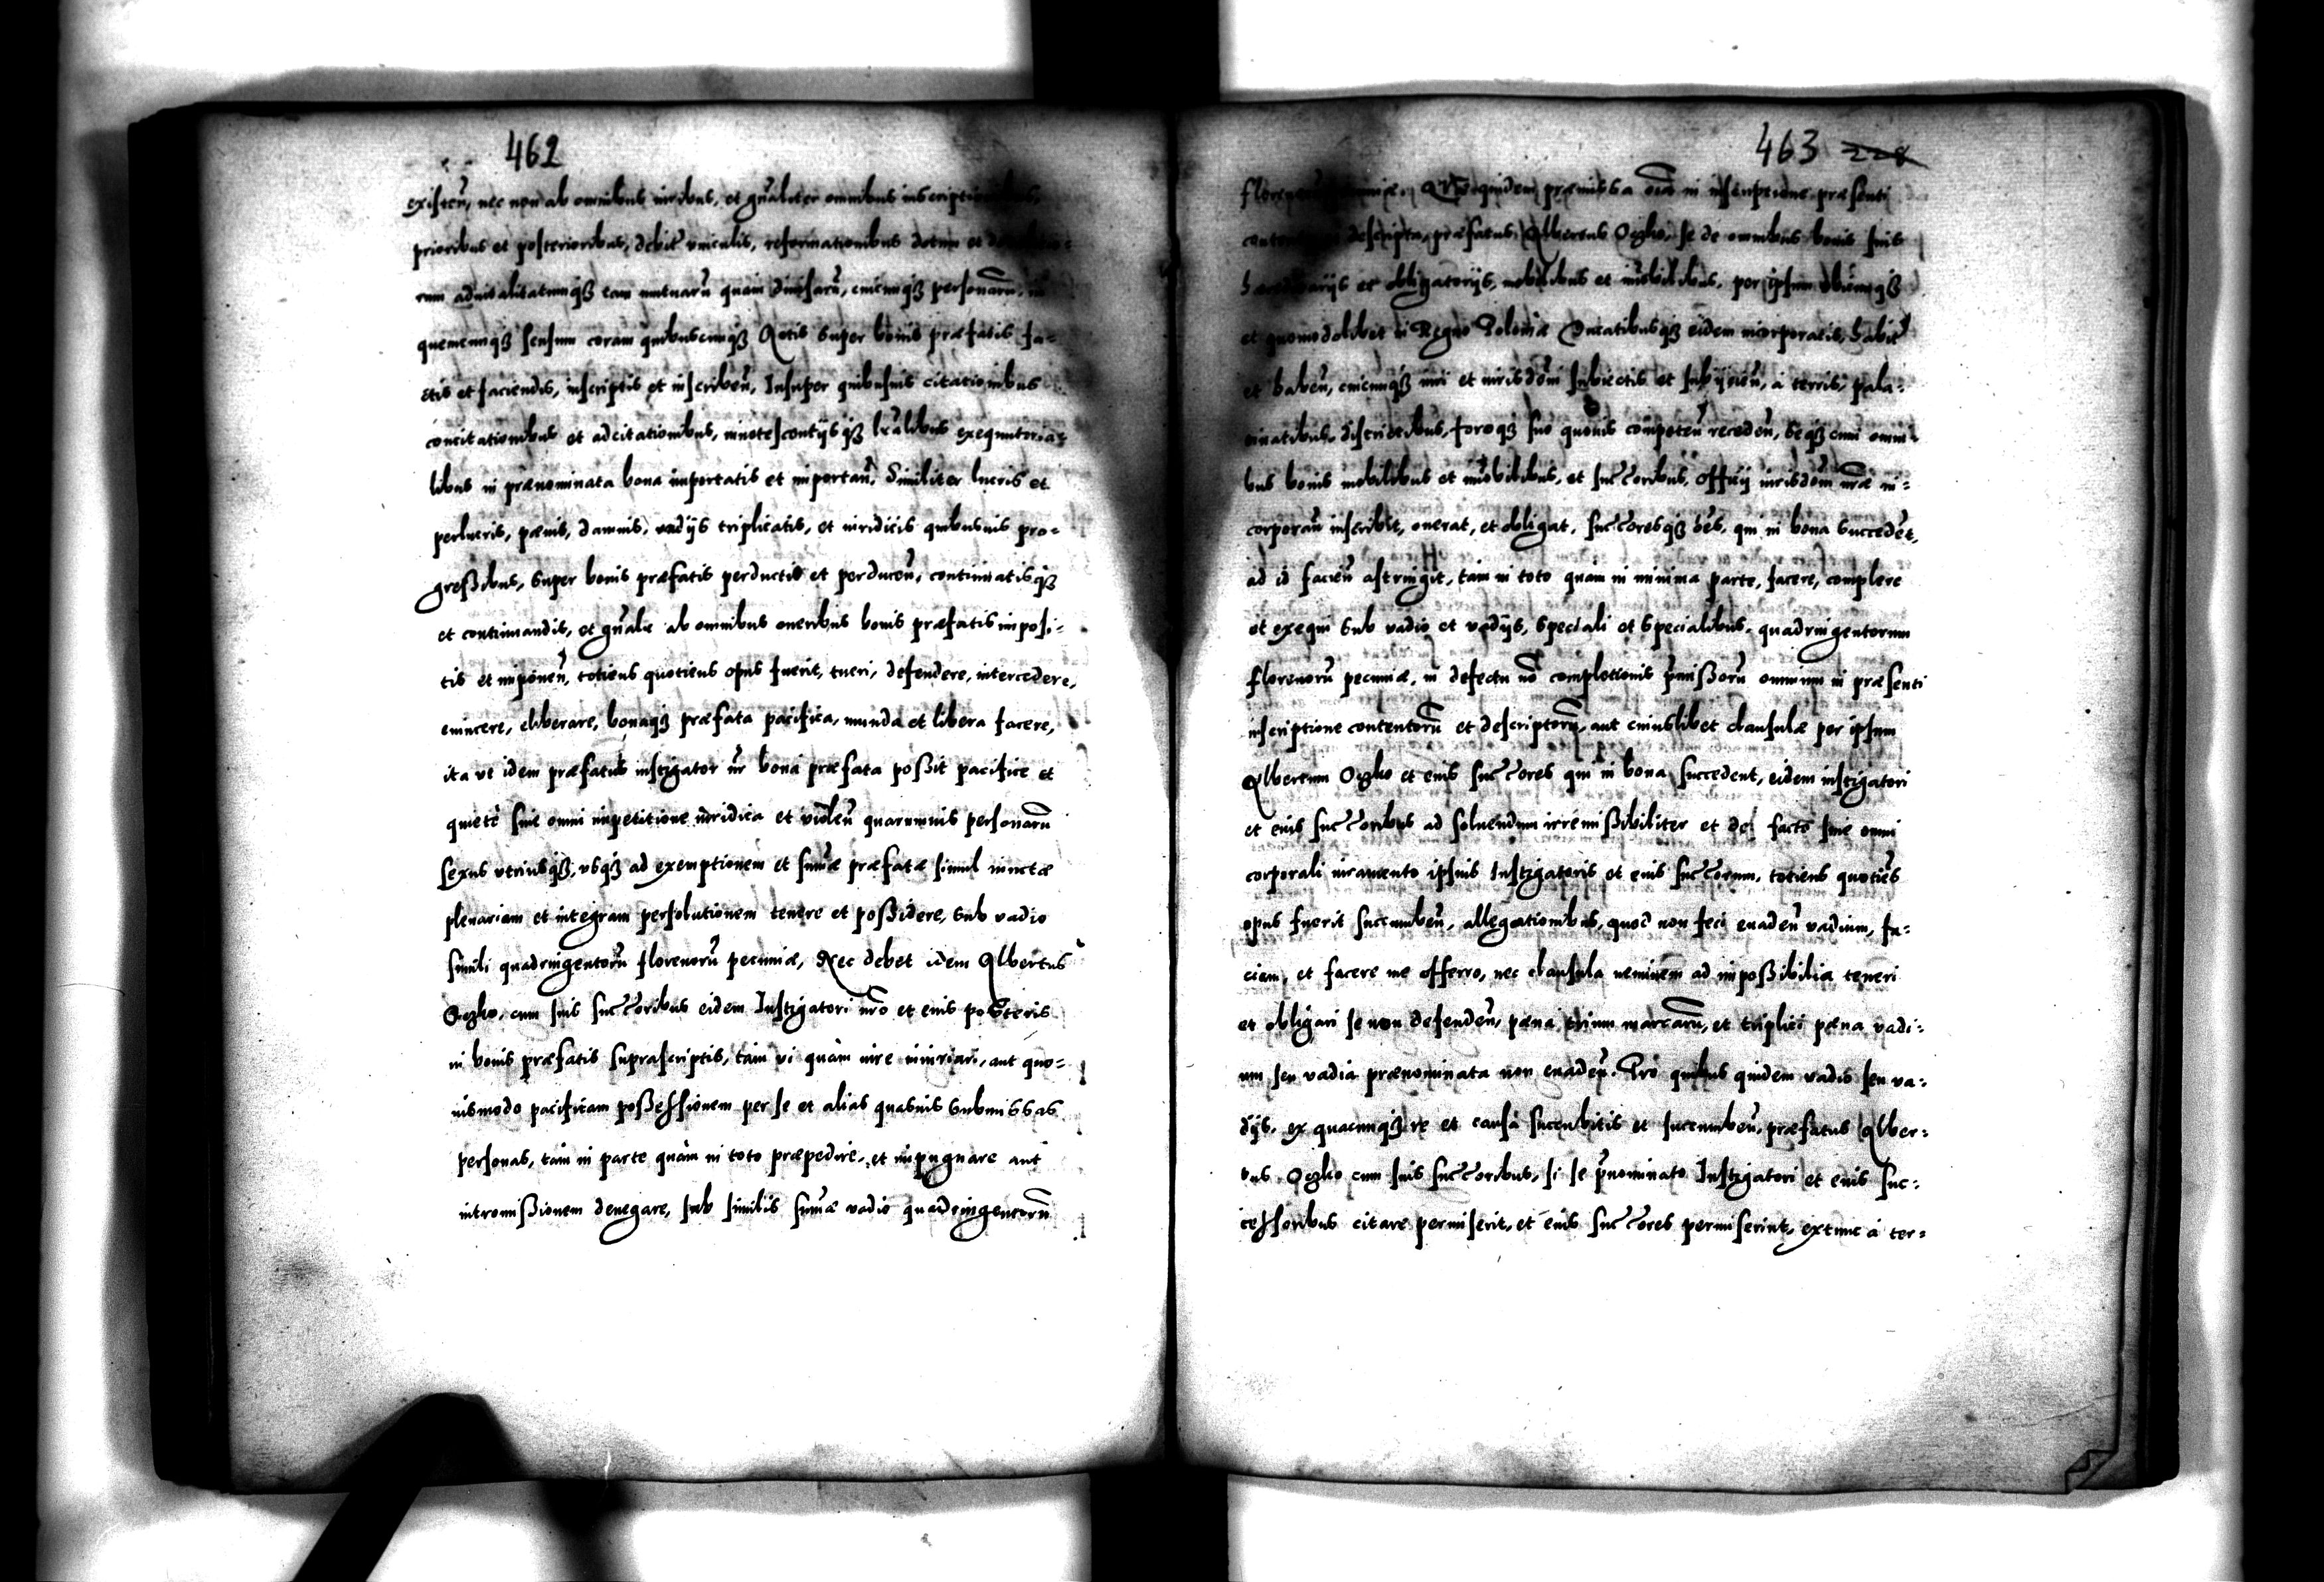 462
existeñ, nec non ab omnibus iuribus, et gnãliter omnibus inscriptionibus,
prioribus et posterioribus, debit vinculis, reformationibus dotium et
rum aduitalitatumqȝ tam mutuarũ quam diuisarũ, cuicunqȝ personarũ, in
quemcunqȝ sensum coram quibuscunqȝ Actis super bonis præfatis fa-
ctis et faciendis, inscriptis et inscribeñ, Insuper quibusuis citationibus
concitationibus et adcitationibus, innotescentijsqȝ lrãlibus exequutoria-
libus in prænominata bona importatis et importañ, Similiter lucris et
perlucris, pænis, damnis, vadijs triplicatis, et iuridicis quibusuis pro-
greßibus, super bonis præfatis perductis et perduceñ, continuatisqȝ
et continuandis, et gnãlit ab omnibus oneribus bonis præfatis imposi-
tis et imponeñ, totiens quotiens opus fuerit, tueri, defendere, intercedere,
euincere, eliberare, bonaqȝ præfata pacifica, munda et libera facere,
ita vt idem præfatus instigator nr bona præfata poßit pacifice et
quietè sine omni impetitione iuridica et violeñ quarumuis personarũ
sexus vtriusqȝ, vsqȝ ad exemptionem et sum̃æ præfatæ simul iunctæ
plenariam et integram persolutionem tenere et poßidere, sub vadio
simili quadringentorũ florenorũ pecuniæ, Nec debet idem Albertus
Oczko, cum suis succ̃oribus eidem Instigatori nrõ et eius posteris
in bonis præfatis suprascriptis, tàm vi quàm iure iniuriari, aut quo-
uismodo pacificam poßessionem per se et alias quasuis submissas
personas, tam in parte quàm in toto præpedire, et impugnare aut
intromißionem denegare, sub similis sum̃æ vadio quadringentorũ
463 228
pecuniæ. quidem præmissa oĩa in inscriptione præsenti
descripta, præfatus Albertus Oczko, se de omnibus bonis suis
et obligatorijs, mobilibus et im̃obilibus, per ipsum vbicunqȝ
et quomodolibet in Regno Poloniæ Ducatibusqȝ eidem incorporatis, habit
et habeñ, cuicunqȝ iuri et iurisdõni subiectis et subijcieñ, à terris, pala-
tinatibus, districtibus, foroqȝ suo quouis competeñ recedeñ, seqȝ cum omni-
bus bonis mobilibus et im̃obilibus, et succ̃oribus, officij iurisdõni nrãe in-
corporañ inscribit, onerat, et obligat, succ̃oresqȝ hẽs, qui in bona succedẽt,
ad id facieñ astringit, tàm in toto quàm in minima parte, facere, complere
et exequi sub vadio et vadijs, speciali et specialibus, quadringentorum
florenorũ pecuniæ, in defectu nõ completionis p̃missorũ omnium in præsenti
inscriptione contentorũ et descriptorũ, aut cuiuslibet clausulæ per ipsum
Albertum Oczko et eius succ̃ores qui in bona succedent, eidem instigatori
et eius succ̃oribus ad soluendum irremißibiliter et de facto sine omni
corporali iuramento ipsius Instigatoris et eius succ̃orum, totiens quotiẽs
opus fuerit succumbeñ, allegationibus, quod non feci euadeñ vadium, fa-
ciam, et facere me offerro, nec clausula neminem ad impoßibilia teneri
et obligari se non defendeñ, pæna trium marcarũ, et triplici pæna vadi-
um seu vadia prænominata non euadeñ. Pro quibus quidem vadio seu va-
dijs, ex quacunqȝ re et causa succubitis et succumbeñ, præfatus Alber-
tus Oczko cum suis succ̃oribus, si se p̃nominato Instigatori et eius suc-
cessoribus citare permiserit, et eius succ̃ores permiserint, extunc à ter-